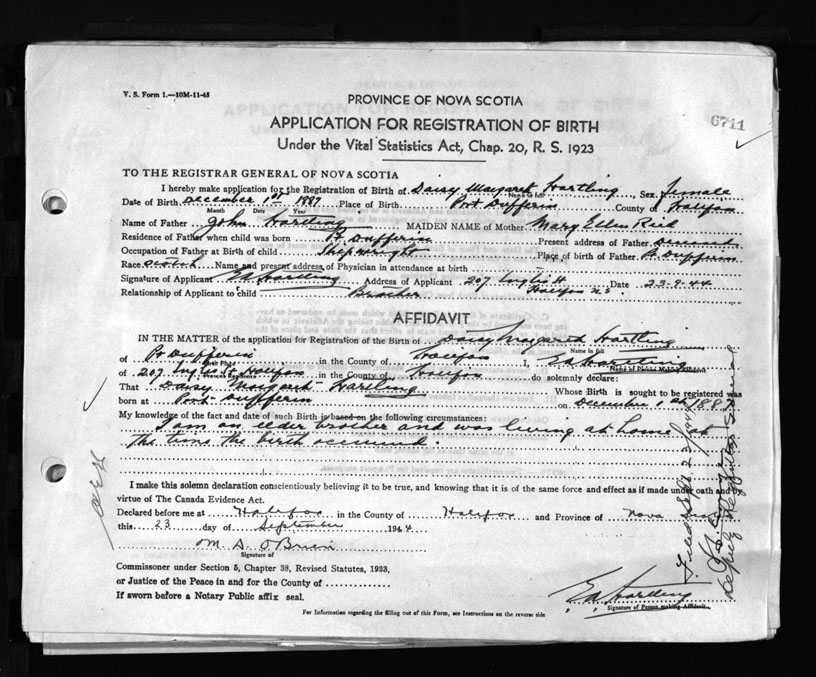 V. S. Form 1.—10M-11-43
PROVINCE OF NOVA SCOTIA
6711
APPLICATION FOR REGISTRATION OF BIRTH
Under the Vital Statistics Act, Chap. 20, R. S. 1923
TO THE REGISTRAR GENERAL OF NOVA SCOTIA
I hereby make application for the Registration of Birth of Daisy Margaret Hartling, Sex Female
Name in full
Date of Birth December 1st 1887 Place of Birth Port Dufferin County of Halifax
Month Date Year
Name of Father John Hartling MAIDEN NAME of Mother Mary Ellen Reid
Residence of Father when child was born Pt Dufferin Present address of Father Deceased
Occupation of Father at Birth of child Shipwright Place of birth of Father Pt Dufferin
Race Scotch Name and present address of Physician in attendance at birth
Signature of Applicant Ed Hartling Address of Applicant 207 Inglis St Halifax N.S. Date 23-9-44
Relationship of Applicant to child Brother
AFFIDAVIT
IN THE MATTER of the application for Registration of the Birth of Daisy Margaret Hartling
Name in full
of Pt Dufferin in the County of Halifax I, Ed Hartling
Birth Place
Name of Person Making Affidavit
of 207 Inglis St Halifax in the County of Halifax do solemnly declare:
Present Residence
That Daisy Margaret Hartling Whose Birth is sought to be registered was
born at Port Dufferin on December 1st 1887
My knowledge of the fact and date of such Birth is based on the following circumstances:
I am an elder brother and was living at home at
the time the birth occurred.
I make this solemn declaration conscientiously believing it to be true, and knowing that it is of the same force and effect as if made under oath and by
virtue of The Canada Evidence Act.
Declared before me at Halifax in the County of Halifax and Province of Nova
this 23 day of September 1944
M S O'Brien
Signature of
Commissoner under Section 5, Chapter 38, Revised Statutes, 1923,
or Justice of the Peace in and for the County of
If sworn before a Notary Public affix seal.
Ed Hartling
Signature of Person making Affidavit
For Information regarding the filling out of this Form, see Instructions on the reverse side
Filed Sept 23/1944
Deputy Registrar General